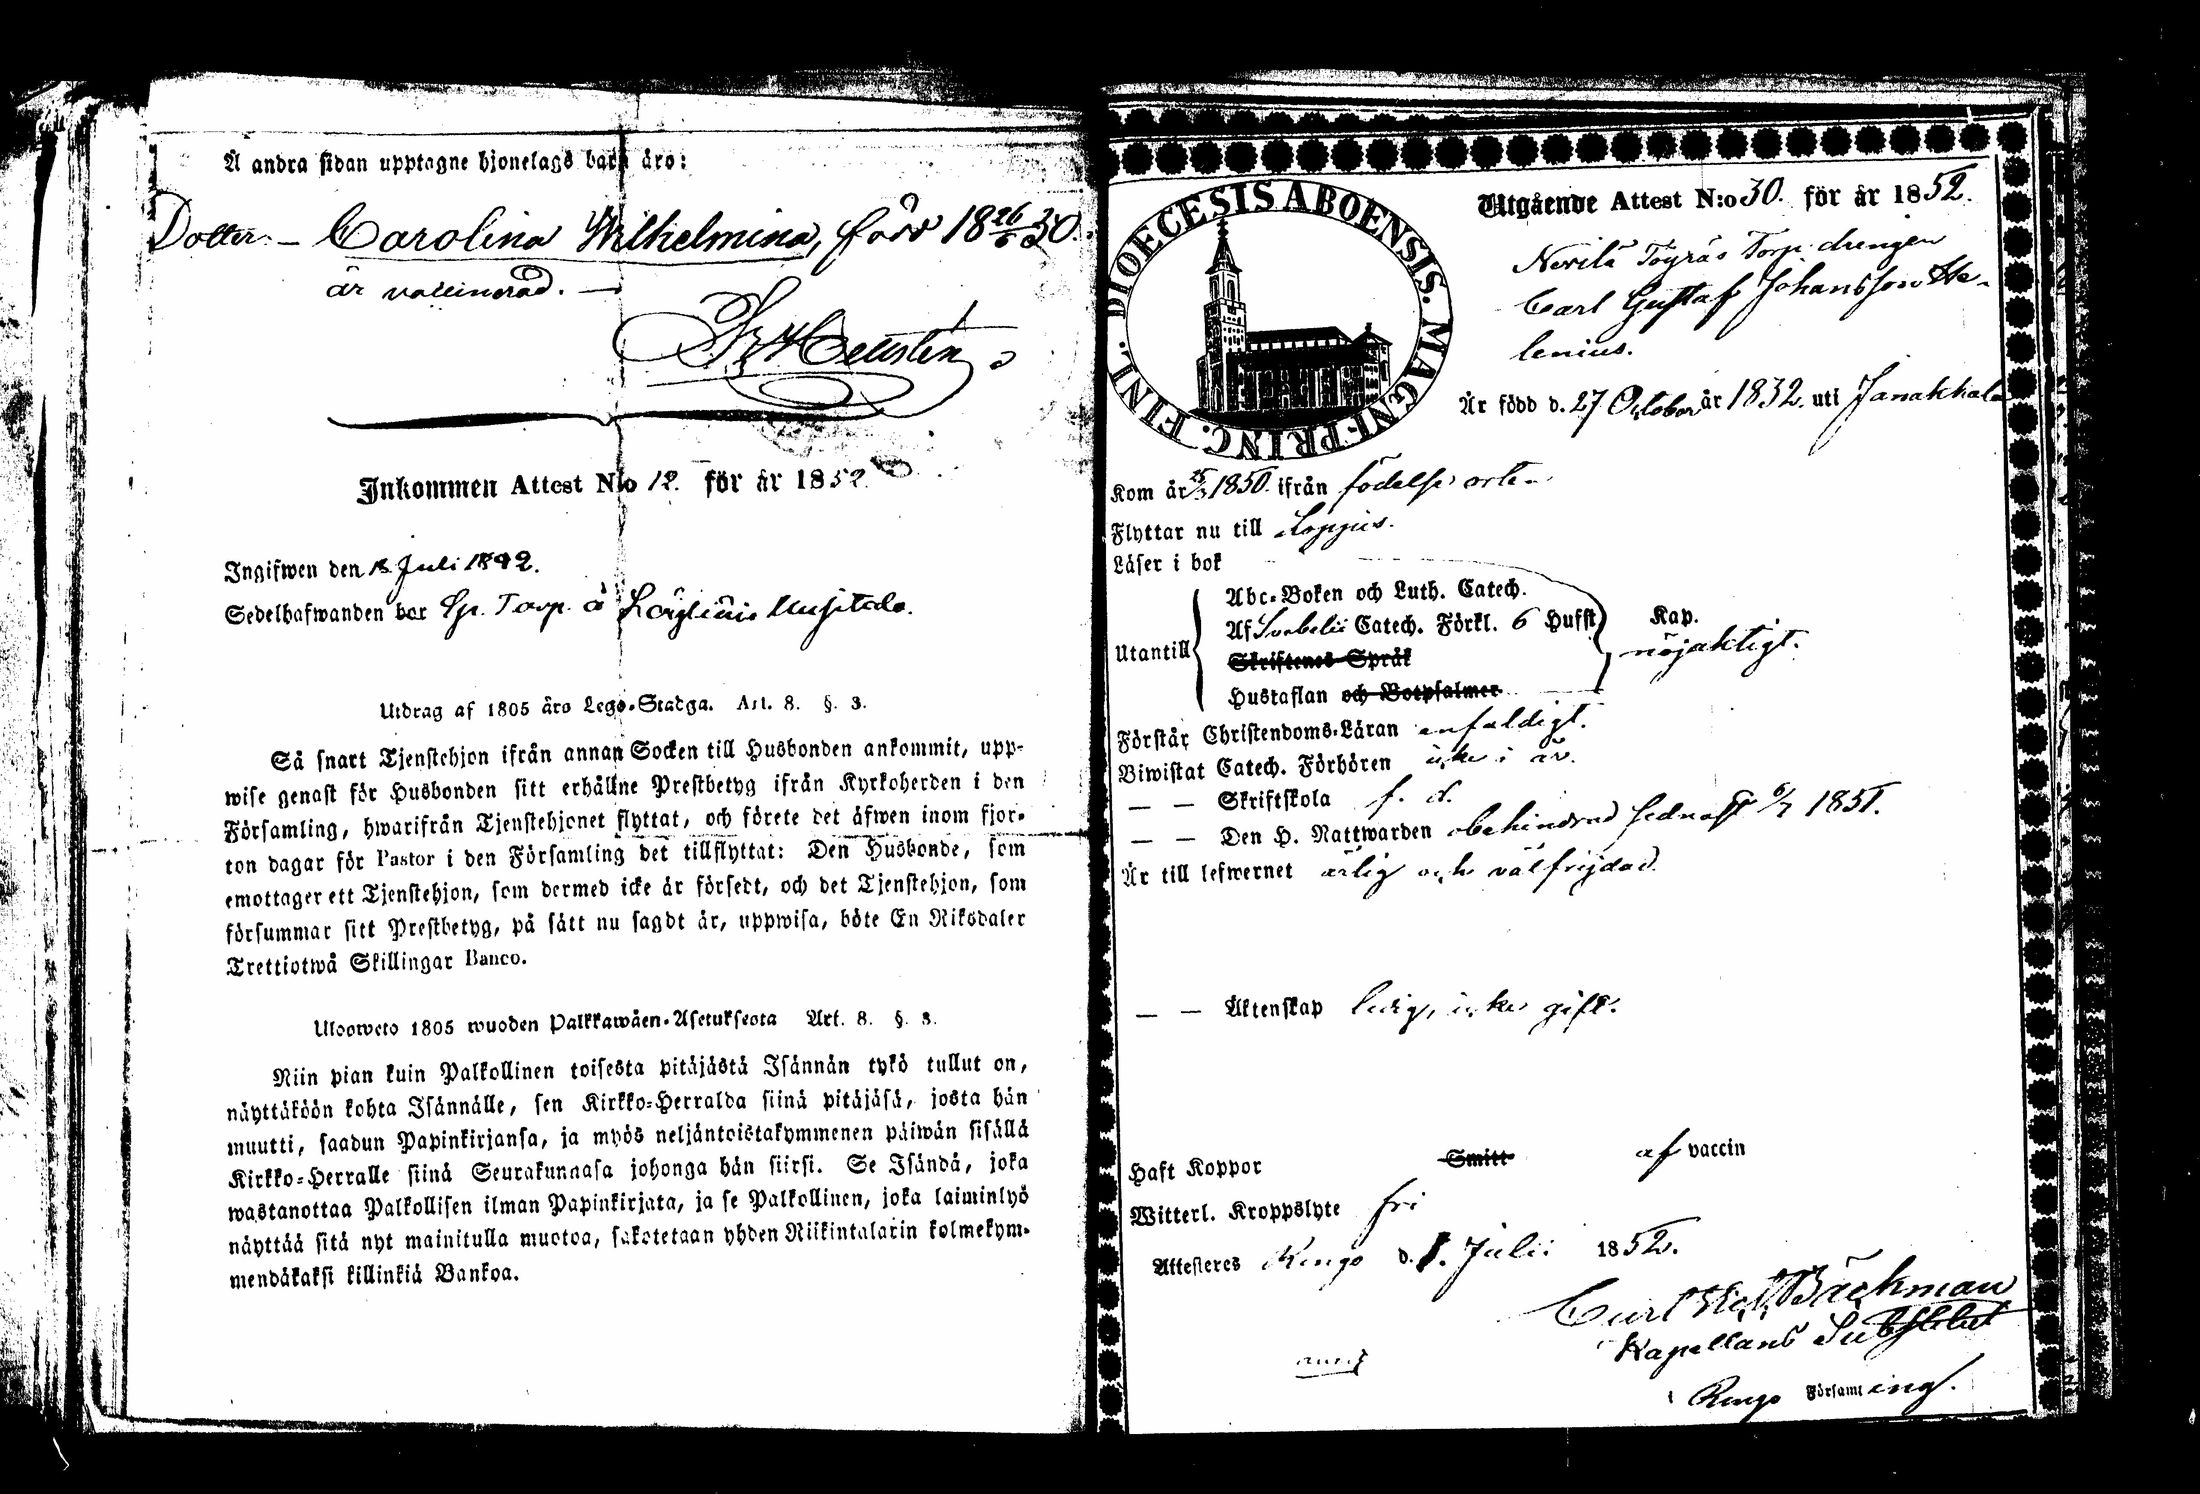 Å andra sidan upptagne hjonelags barn äro:
Dotter. – Carolina Wilhelmina, född 18 26/6 30.
är vaccinerad. —
Inkommen Attest N:o 12. för år 1852
Ingifwen den 18 Juli 1892.
Sedelhafwanden bor
Utdrag af 1805 års Lego-Stadga. Art. 8. §. 3.
Så snart Tjenstehjon ifrån annan Socken till Husbonden ankommit, upp-
wise genast för Husbonden sitt erhållne Prestbetyg ifrån Kyrkoherden i den
Församling, hwarifrån Tjenstehjonet flyttat, och förete det äfwen inom fjor-
ton dagar för Pastor i den Församling det tillflyttat: Den Husbonde, som
emottager ett Tjenstehjon, som dermed icke är försedt, och det Tjenstehjon, som
försummar sitt Prestbetyg, på sätt nu sagdt är, uppwisa, böte En Riksdaler
Trettiotwå Skillingar Banco.
Ulosweto 1805 wuoden Palkkawäen-Asetuksesta Art. 8. §. 3.
Niin pian kuin Palkollinen toisesta pitäjästä Isännän tykö tullut on,
näyttäköön kohta Isännälle, sen Kirkko-Herralda siinä pitäjäsä, josta hän
muutti, saadun Papinkirjansa, ja myös neljäntoistakymmenen päiwän sisällä
Kirkko-Herralle siinä Seurakunnasa johonga hän siirsi. Se Isändä, joka
wastanottaa Palkollisen ilman Papinkirjata, ja se Palkollinen, joka laiminlyö
näyttää sitä nyt mainitulla muotoa, sakotetaan yhden Riikintalarin kolmekym-
mendäkaksi killinkiä Bankoa.
DIOECESIS ABOENSIS. MAGNI. PRINC. FINL.
Utgående Attest N:o 30. för år 1852.
Nevilä Töyräs Torp. drengen
Carl Gustaf Johansson He-
lenius.
Är född d. 27 October år 1832. uti Janakkala
Kom år 1850. ifrån födelse orten
Flyttar nu till Loppis.
Läser i bok
Abc-Boken och Luth. Catech.
Utantill Af Svebelii Catech. Förkl. 6 Hufst. Kap.
Skriftenes Språk nöjaktigt.
Hustaflan och Botpsalmer
Förstår Christendoms-Läran enfaldigt.
Biwistat Catech. Förhören icke i år.
— — Skriftskola f. d.
— — Den H. Nattwarden obehindrad sednast 6/7 1851.
Är till lefwernet ärlig och välfrejdad.
— — Äktenskap ledig, icke gift.
Haft Koppor Smitt af vaccin
Witterl. Kroppslyte fri
Attesteres Rengo d. 1. Julii 1852.
Carl Bäckman
Kapellans Substitut
i Rengo Församling.